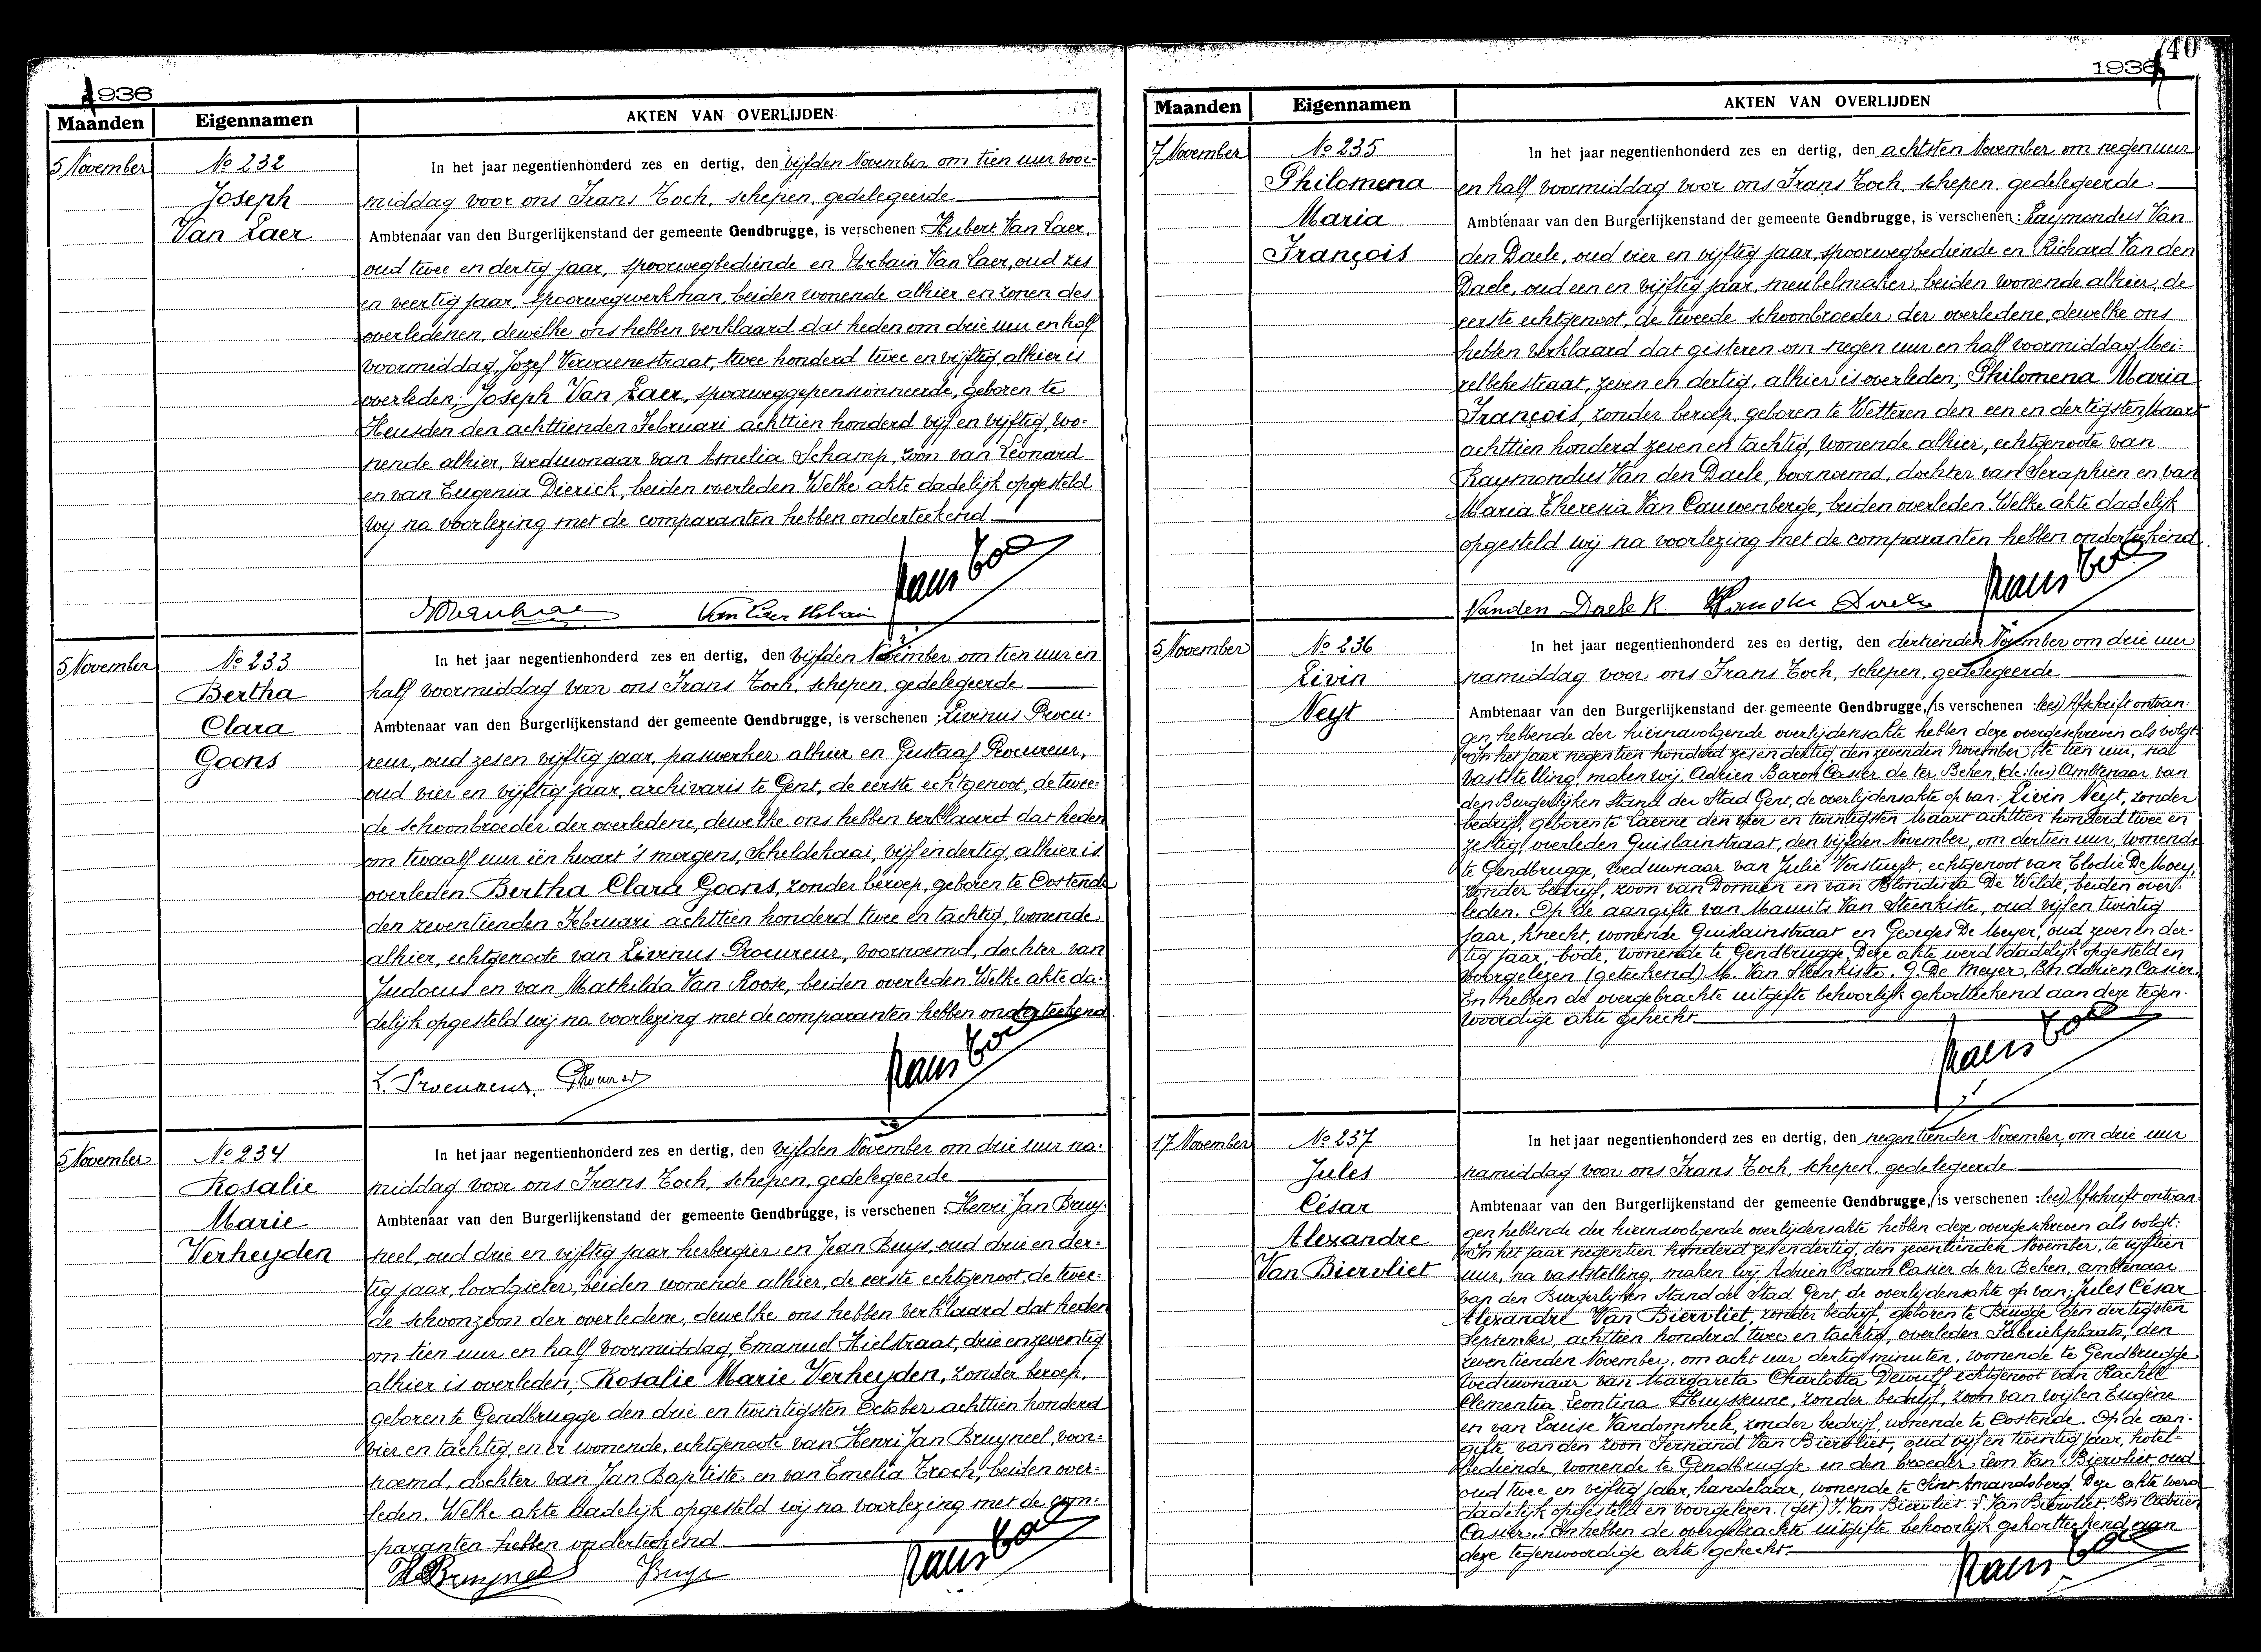 1936
Maanden Eigennamen AKTEN VAN OVERLIJDEN
5 November
No 232
Joseph
Van Laer
In het jaar negentienhonderd zes en dertig, den vijfden November om tien uur voor-
middag voor ons Frans Toch, schepen, gedelegeerde
Ambtenaar van den Burgerlijkenstand der gemeente Gendbrugge, is verschenen: Hubert Van Laer,
oud twee en dertig jaar, spoorwegbediende en Urbain Van Laer, oud zes
en veertig jaar, spoorwegwerkman, beiden wonende alhier, en zonen des
overledenen, dewelke ons hebben verklaard dat heden om drie uur en half
voormiddag, Jozef Vervaenestraat, twee honderd twee en vijftig, alhier is
overleden; Joseph Van Laer, spoorweggepensionneerde, geboren te
Heusden den achttienden Februari achttien honderd vijf en vijftig, wo-
nende alhier, weduwnaar van Amelia Schamp, zoon van Leonard
en van Eugenia Dierick, beiden overleden. Welke akte dadelijk opgesteld
wij na voorlezing met de comparanten hebben onderteekend
Van Laer Urbain
Frans Toch
5 November
No 233
Bertha
Clara
Goons
In het jaar negentienhonderd zes en dertig, den vijfden November om tien uur en
half voormiddag voor ons Frans Toch, schepen, gedelegeerde
Ambtenaar van den Burgerlijkenstand der gemeente Gendbrugge, is verschenen: Livinus Procu-
reur, oud zes en vijftig jaar, paswerker alhier en Gustaaf Procureur,
oud vier en vijftig jaar, archivaris te Gent, de eerste echtgenoot, de twee-
de schoonbroeder der overledene, dewelke ons hebben verklaard dat heden
om twaalf uur één kwart 's morgens, Scheldekaai, vijf en dertig, alhier is
overleden. Bertha Clara Goons, zonder beroep, geboren te Oostende
den zeventienden Februari achttien honderd twee en tachtig, wonende
alhier, echtgenoote van Livinus Procureur, voornoemd, dochter van
Judocus en van Mathilda Van Roose, beiden overleden. Welke akte da-
delijk opgesteld wij na voorlezing met de comparanten hebben onderteekend
L. Procureur
Frans Toch
5 November
No 234
Rosalie
Marie
Verheyden
In het jaar negentienhonderd zes en dertig, den vijfden November om drie uur na-
middag voor ons Frans Toch, schepen, gedelegeerde
Ambtenaar van den Burgerlijkenstand der gemeente Gendbrugge, is verschenen: Henri Jan Bruy-
neel, oud drie en vijftig jaar herbergier en Jean Buys, oud drie en der-
tig jaar, loodgieter, beiden wonende alhier, de eerste echtgenoot, de twee-
de schoonzoon der overledene, dewelke ons hebben verklaard dat heden
om tien uur en half voormiddag, Emanuel Hielstraat, drie en zeventig
alhier is overleden, Rosalie Marie Verheyden, zonder beroep,
geboren te Gendbrugge den drie en twintigsten October achttien honderd
vier en tachtig, en er wonende, echtgenoote van Henri Jan Bruyneel, voor-
noemd, dochter van Jan Baptiste en van Emelia Troch, beiden over-
leden. Welke akte dadelijk opgesteld wij na voorlezing met de com-
paranten hebben onderteekend
H Bruyneel Buys
Frans Toch
40
1936
Maanden Eigennamen AKTEN VAN OVERLIJDEN
7 November
No 235
Philomena
Maria
François
In het jaar negentienhonderd zes en dertig, den achtsten November om negen uur
en half voormiddag voor ons Frans Toch, schepen, gedelegeerde
Ambtenaar van den Burgerlijkenstand der gemeente Gendbrugge, is verschenen: Raymondus Van
den Daele, oud vier en vijftig jaar, spoorwegbediende en Richard Van den
Daele, oud een en vijftig jaar, meubelmaker, beiden wonende alhier, de
eerste echtgenoot, de tweede schoonbroeder der overledene, dewelke ons
hebben verklaard dat gisteren om negen uur en half voormiddag, Mei-
relbekestraat, zeven en dertig, alhier is overleden; Philomena Maria
François, zonder beroep, geboren te Wetteren den een en dertigsten Maart
achttien honderd zeven en tachtig, wonende alhier, echtgenoote van
Raymondus Van den Daele, voornoemd, dochter van Seraphien en van
Maria Theresia Van Cauwenberge, beiden overleden. Welke akte dadelijk
opgesteld wij na voorlezing met de comparanten hebben onderteekend
Vanden Daele R.
Frans Toch
5 November
No 236
Livin
Neyt
In het jaar negentienhonderd zes en dertig, den dertienden November om drie uur
namiddag voor ons Frans Toch, schepen, gedelegeerde
Ambtenaar van den Burgerlijkenstand der gemeente Gendbrugge, (is verschenen: lees) Afschrift ontvan-
gen hebbende der hiernavolgende overlijdensakte hebben deze overgeschreven als volgt:
"In het jaar negentien honderd zes en dertig den zevenden November, te tien uur, na
vaststelling, maken wij, Adrien Baron Casier de ter Beken, (de: lees) Ambtenaar van
den Burgerlijken Stand der Stad Gent, de overlijdensakte op van: Livin Neyt, zonder
bedrijf, geboren te Laerne den vier en twintigsten Maart achttien honderd twee en
zestig, overleden Guislainstraat, den vijfden November, om dertien uur, wonende
te Gendbrugge, weduwnaar van Julie Verstuyft, echtgenoot van Elodie De Moey,
zonder bedrijf, zoon van Domien en van Blondina De Wilde, beiden over-
leden. Op de aangifte van Maurits Van Steenkiste, oud vijf en twintig
jaar, knecht, wonende Guislainstraat en Georges De Meyer, oud zeven en der-
tig jaar, bode, wonende te Gendbrugge. Deze akte werd dadelijk opgesteld en
voorgelezen (geteekend) M. Van Steenkiste. G. De Meyer, Bn Adrien Casier.
En hebben de overgebrachte uitgifte behoorlijk gekortteekend aan deze tegen-
woordige akte gehecht.
Frans Toch
17 November
No 237
Jules
César
Alexandre
Van Biervliet
In het jaar negentienhonderd zes en dertig, den negentienden November, om drie uur
namiddag voor ons Frans Toch, schepen, gedelegeerde
Ambtenaar van den Burgerlijkenstand der gemeente Gendbrugge, (is verschenen: lees) Afschrift ontvan-
gen hebbende der hiernavolgende overlijdensakte hebben deze overgeschreven als volgt:
"In het jaar negentien honderd zes en dertig, den zeventienden November, te vijftien
uur, na vaststelling, maken wij Adrien Baron Casier de ter Beken, ambtenaar
van den Burgerlijken Stand der Stad Gent, de overlijdensakte op van: Jules César
Alexandre Van Biervliet, zonder bedrijf, geboren te Brugge den dertigsten
September, achttien honderd twee en tachtig, overleden Fabriekplaats, den
zeventienden November, om acht uur dertig minuten, wonende te Gendbrugge
weduwnaar van Margareta Charlotta Dewulf, echtgenoot van Rachel
Clementia Leontina Huyseune, zonder bedrijf, zoon van wijlen Eugène
en van Louise Vandommele, zonder bedrijf, wonende te Oostende. Op de aan-
gifte van den zoon Fernand Van Biervliet, oud vijf en twintig jaar, hotel-
bediende, wonende te Gendbrugge en den broeder Leon Van Biervliet, oud
oud twee en vijftig jaar, handelaar, wonende te Sint-Amandsberg. Deze akte werd
dadelijk opgesteld en voorgelezen. (get.) F. Van Biervliet. L. Van Biervliet. Bn Adrien
Casier". En hebben de overgebrachte uitgifte behoorlijk gekortteekend aan
deze tegenwoordige akte gehecht.
Frans Toch